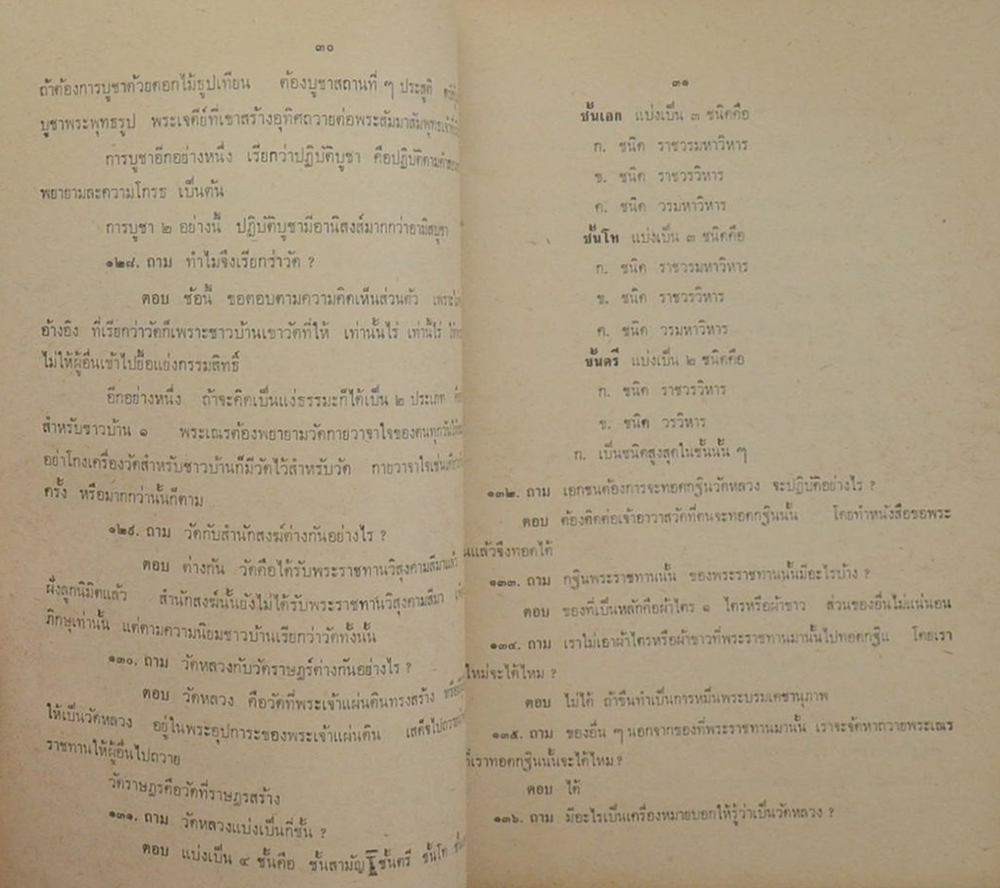 ๓๐
ถ้าต้องการบูชาด้วยดอกไม้ธูปเทียน ต้องบูชาสถานที่ ๆ ประสูติ
บูชาพระพุทธรูป พระเจดีย์ที่เขาสร้างอุทิศถวายต่อพระสัมมาสัมพุทธเจ้า
การบูชาอีกอย่างหนึ่ง เรียกว่าปฏิบัติบูชา คือปฏิบัติตาม
พยายามละความโกรธ เป็นต้น
การบูชา ๒ อย่างนี้ ปฏิบัติบูชามีอานิสงส์มากกว่าอามิสบูชา
๑๒๘. ถาม ทำไมจึงเรียกว่าวัด ?
ตอบ ข้อนี้ ขอตอบตามความคิดเห็นส่วนตัว
อ้างอิง ที่เรียกว่าวัดก็เพราะชาวบ้านเขาวัดที่ให้ เท่านั้นไร่ เท่านี้ไร่
ไม่ให้ผู้อื่นเข้าไปยื้อแย่งกรรมสิทธิ์
อีกอย่างหนึ่ง ถ้าจะคิดเป็นแง่ธรรมะก็ได้เป็น ๒ ประเภท
สำหรับชาวบ้าน ๑ พระเณรต้องพยายามวัดกายวาจาใจของตนทุกวัน
อย่าโกงเครื่องวัดสำหรับชาวบ้านก็มีวัดไว้สำหรับวัด กายวาจาใจเช่น
ครั้ง หรือมากกว่านั้นก็ตาม
๑๒๙. ถาม วัดกับสำนักสงฆ์ต่างกันอย่างไร ?
ตอบ ต่างกัน วัดคือได้รับพระราชทานวิสุงคามสีมาแล้ว
ฝังลูกนิมิตแล้ว สำนักสงฆ์นั้นยังไม่ได้รับพระราชทานวิสุงคามสีมา
ภิกษุเท่านั้น แต่ตามความนิยมชาวบ้านเรียกว่าวัดทั้งนั้น
๑๓๐. ถาม วัดหลวงกับวัดราษฎร์ต่างกันอย่างไร ?
ตอบ วัดหลวง คือวัดที่พระเจ้าแผ่นดินทรงสร้าง
ให้เป็นวัดหลวง อยู่ในพระอุปการะของพระเจ้าแผ่นดิน เสด็จไปถวาย
ราชทานให้ผู้อื่นไปถวาย
วัดราษฎรคือวัดที่ราษฎรสร้าง
๑๓๑. ถาม วัดหลวงแบ่งเป็นกี่ชั้น ?
ตอบ แบ่งเป็น ๔ ชั้นคือ ชั้นสามัญ ชั้นตรี ชั้นโท
๓๑
ชั้นเอก แบ่งเป็น ๓ ชนิดคือ
ก. ชนิด ราชวรมหาวิหาร
ข. ชนิด ราชวรวิหาร
ค. ชนิด วรมหาวิหาร
ชั้นโท แบ่งเป็น ๓ ชนิดคือ
ก. ชนิด ราชวรมหาวิหาร
ข. ชนิด ราชวรวิหาร
ค. ชนิด วรมหาวิหาร
ชั้นตรี แบ่งเป็น ๒ ชนิดคือ
ก. ชนิด ราชวรวิหาร
ข. ชนิด วรวิหาร
ก. เป็นชนิดสูงสุดในชั้นนั้น ๆ
๑๓๒. ถาม เอกชนต้องการจะทอดกฐินวัดหลวง จะปฏิบัติอย่างไร ?
ตอบ ต้องติดต่อเจ้าอาวาสวัดที่ตนจะทอดกฐินนั้น โดยทำหนังสือขอพระ
นแล้วจึงทอดได้
๑๓๓. ถาม กฐินพระราชทานนั้น ของพระราชทานนั้นมีอะไรบ้าง ?
ตอบ ของที่เป็นหลักคือผ้าไตร ๑ ไตรหรือผ้าขาว ส่วนของอื่นไม่แน่นอน
๑๓๔. ถาม เราไม่เอาผ้าไตรหรือผ้าขาวที่พระราชทานมานั้นไปทอดกฐิน โดยเรา
ใหม่จะได้ไหม ?
ตอบ ไม่ได้ ถ้าขืนทำเป็นการหมิ่นพระบรมเดชานุภาพ
๑๓๕. ถาม ของอื่น ๆ นอกจากของที่พระราชทานมานั้น เราจะจัดหาถวายพระเณร
ที่เราทอดกฐินนั้นจะได้ไหม ?
ตอบ ได้
๑๓๖. ถาม มีอะไรเป็นเครื่องหมายบอกให้รู้ว่าเป็นวัดหลวง ?